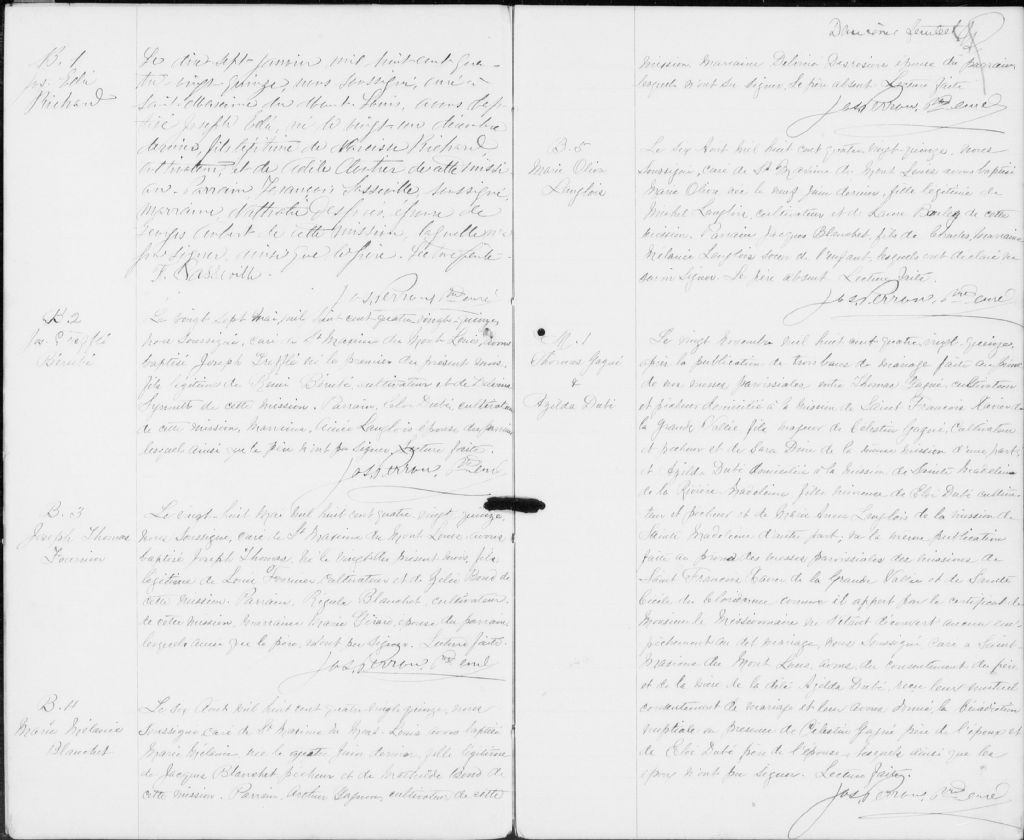 B. 1
Jos. Elie
Richard
Le dix-sept janvier mil huit-cent-qua-
tre-vingt-quinze, nous soussigné, curé à
Saint-Maxime du Mont Louis, avons bap-
tisé Joseph Elie, né le vingt-un décembre
dernier, fils légitime de Narcisse Richard
cultivateur, et de Adèle Cloutier de cette missi-
on. Parrain François Lasseville soussigné,
marraine, Nathalie Després, épouse de
Georges Aubert de cette mission, laquelle n'a
pu signer, ainsi que le père. Lecture faite.
F. Vasseville.
Jos. Perron, Ptre curé
B. 2
Jos. Trefflé
Bérubé
Le vingt sept Mai, mil huit cent quatre vingt-quinze,
nous Soussigné, curé de St Maxime du Mont Louis, avons
baptisé Joseph Trefflé né le premier du présent mois,
fils légitime de Rémi Bérubé, cultivateur et de
de cette mission. Parrain, Elie Dubé, cultivateur
de cette mission, Marraine, Langlois épouse du parrain
lesquels ainsi que le père n'ont pu signer. Lecture faite.
Jos. Perron, Ptre curé
B. 3
Joseph Thomas
Fournier
Le vingt-huit Mai mil huit cent quatre vingt quinze,
Nous Soussigné, curé de St Maxime du Mont Louis avons
baptisé Joseph Thomas, né le vingt du présent mois, fils
légitime de Louis Fournier cultivateur et de Zélie Bond de
cette mission. Parrain, Régule Blanchet, cultivateur
de cette mission, marraine Marie Girard, épouse du parrain
lesquels ainsi que le père, n'ont pu Signer. Lecture faite.
Jos. Perron, Ptre curé
B. 4
Marie Mélanie
Blanchet
Le six Août mil huit cent quatre vingt quinze, nous
Soussigné curé de St Maxime du Mont Louis avons baptisé
Marie Mélanie, née le quatre Juin dernier, fille légitime
de Jacques Blanchet pêcheur et de Mathilde Bond de
cette mission. Parrain, Arthur Gagnon, cultivateur de cette
Deuxième feuillet
mission Marraine Delvina Desrosiers épouse du parrain,
lesquels n'ont su signer, le père absent. Lecture faite
Jos. Perron, Ptre curé
B. 5
Marie Oliva
Langlois
Le six Août mil huit cent quatre vingt-quinze, nous
Soussigné, curé de St Maxime du Mont Louis avons baptisé
Marie Oliva née le neuf Juin dernier, fille légitime de
Michel Langlois, cultivateur et de Laura de cette
mission. Parrain Jacques Blanchet, fils de Charles, marraine
Mélanie Langlois soeur de l'enfant, lesquels ont déclaré ne
savoir signer. Le père absent. Lecture faite
Jos. Perron, Ptre curé
M. 1
Thomas Gagné
&
Azilda Dubé
Le vingt Novembre mil huit cent quatre-vingt-quinze,
après la publication de trois bans de mariage faite au prône
de nos messes paroissiales entre Thomas Gagné, cultivateur
et pêcheur domicilié à la mission de Saint François Xavier de
la Grande Vallée fils majeur de Célestin Gagné, cultivateur
et pêcheur et de Sara Dine de la même mission d'une part;
et Azilda Dubé domiciliée à la mission de Sainte Madeleine
de la Rivière-Madeleine, fille mineure de Elie Dubé cultiva-
teur et pêcheur et de Marie Anne Langlois de la mission de
Sainte Madeleine d'autre part, vu la même publication
faite au prône des messes paroissiales des missions de
Saint Francois Xavier de la Grande Vallée et de Sainte
Cécile du Cloridorme comme il appert par le certificat de
Monsieur le Missionnaire ne s'étant découvert aucun em-
pêchement au dit mariage, nous Soussigné curé à Saint
Maxime du Mont Louis, avons, du consentement du père
et de la mère de la dite Azilda Dubé, reçu leur mutuel
consentement de mariage et leur avons donné la bénédiction
nuptiale en présence de Célestin Gagné père de l'époux et
de Elie Dubé père de l'épouse, lesquels ainsi que les
époux n'ont pu signer. Lecture faite.
Jos. Perron, Ptre curé